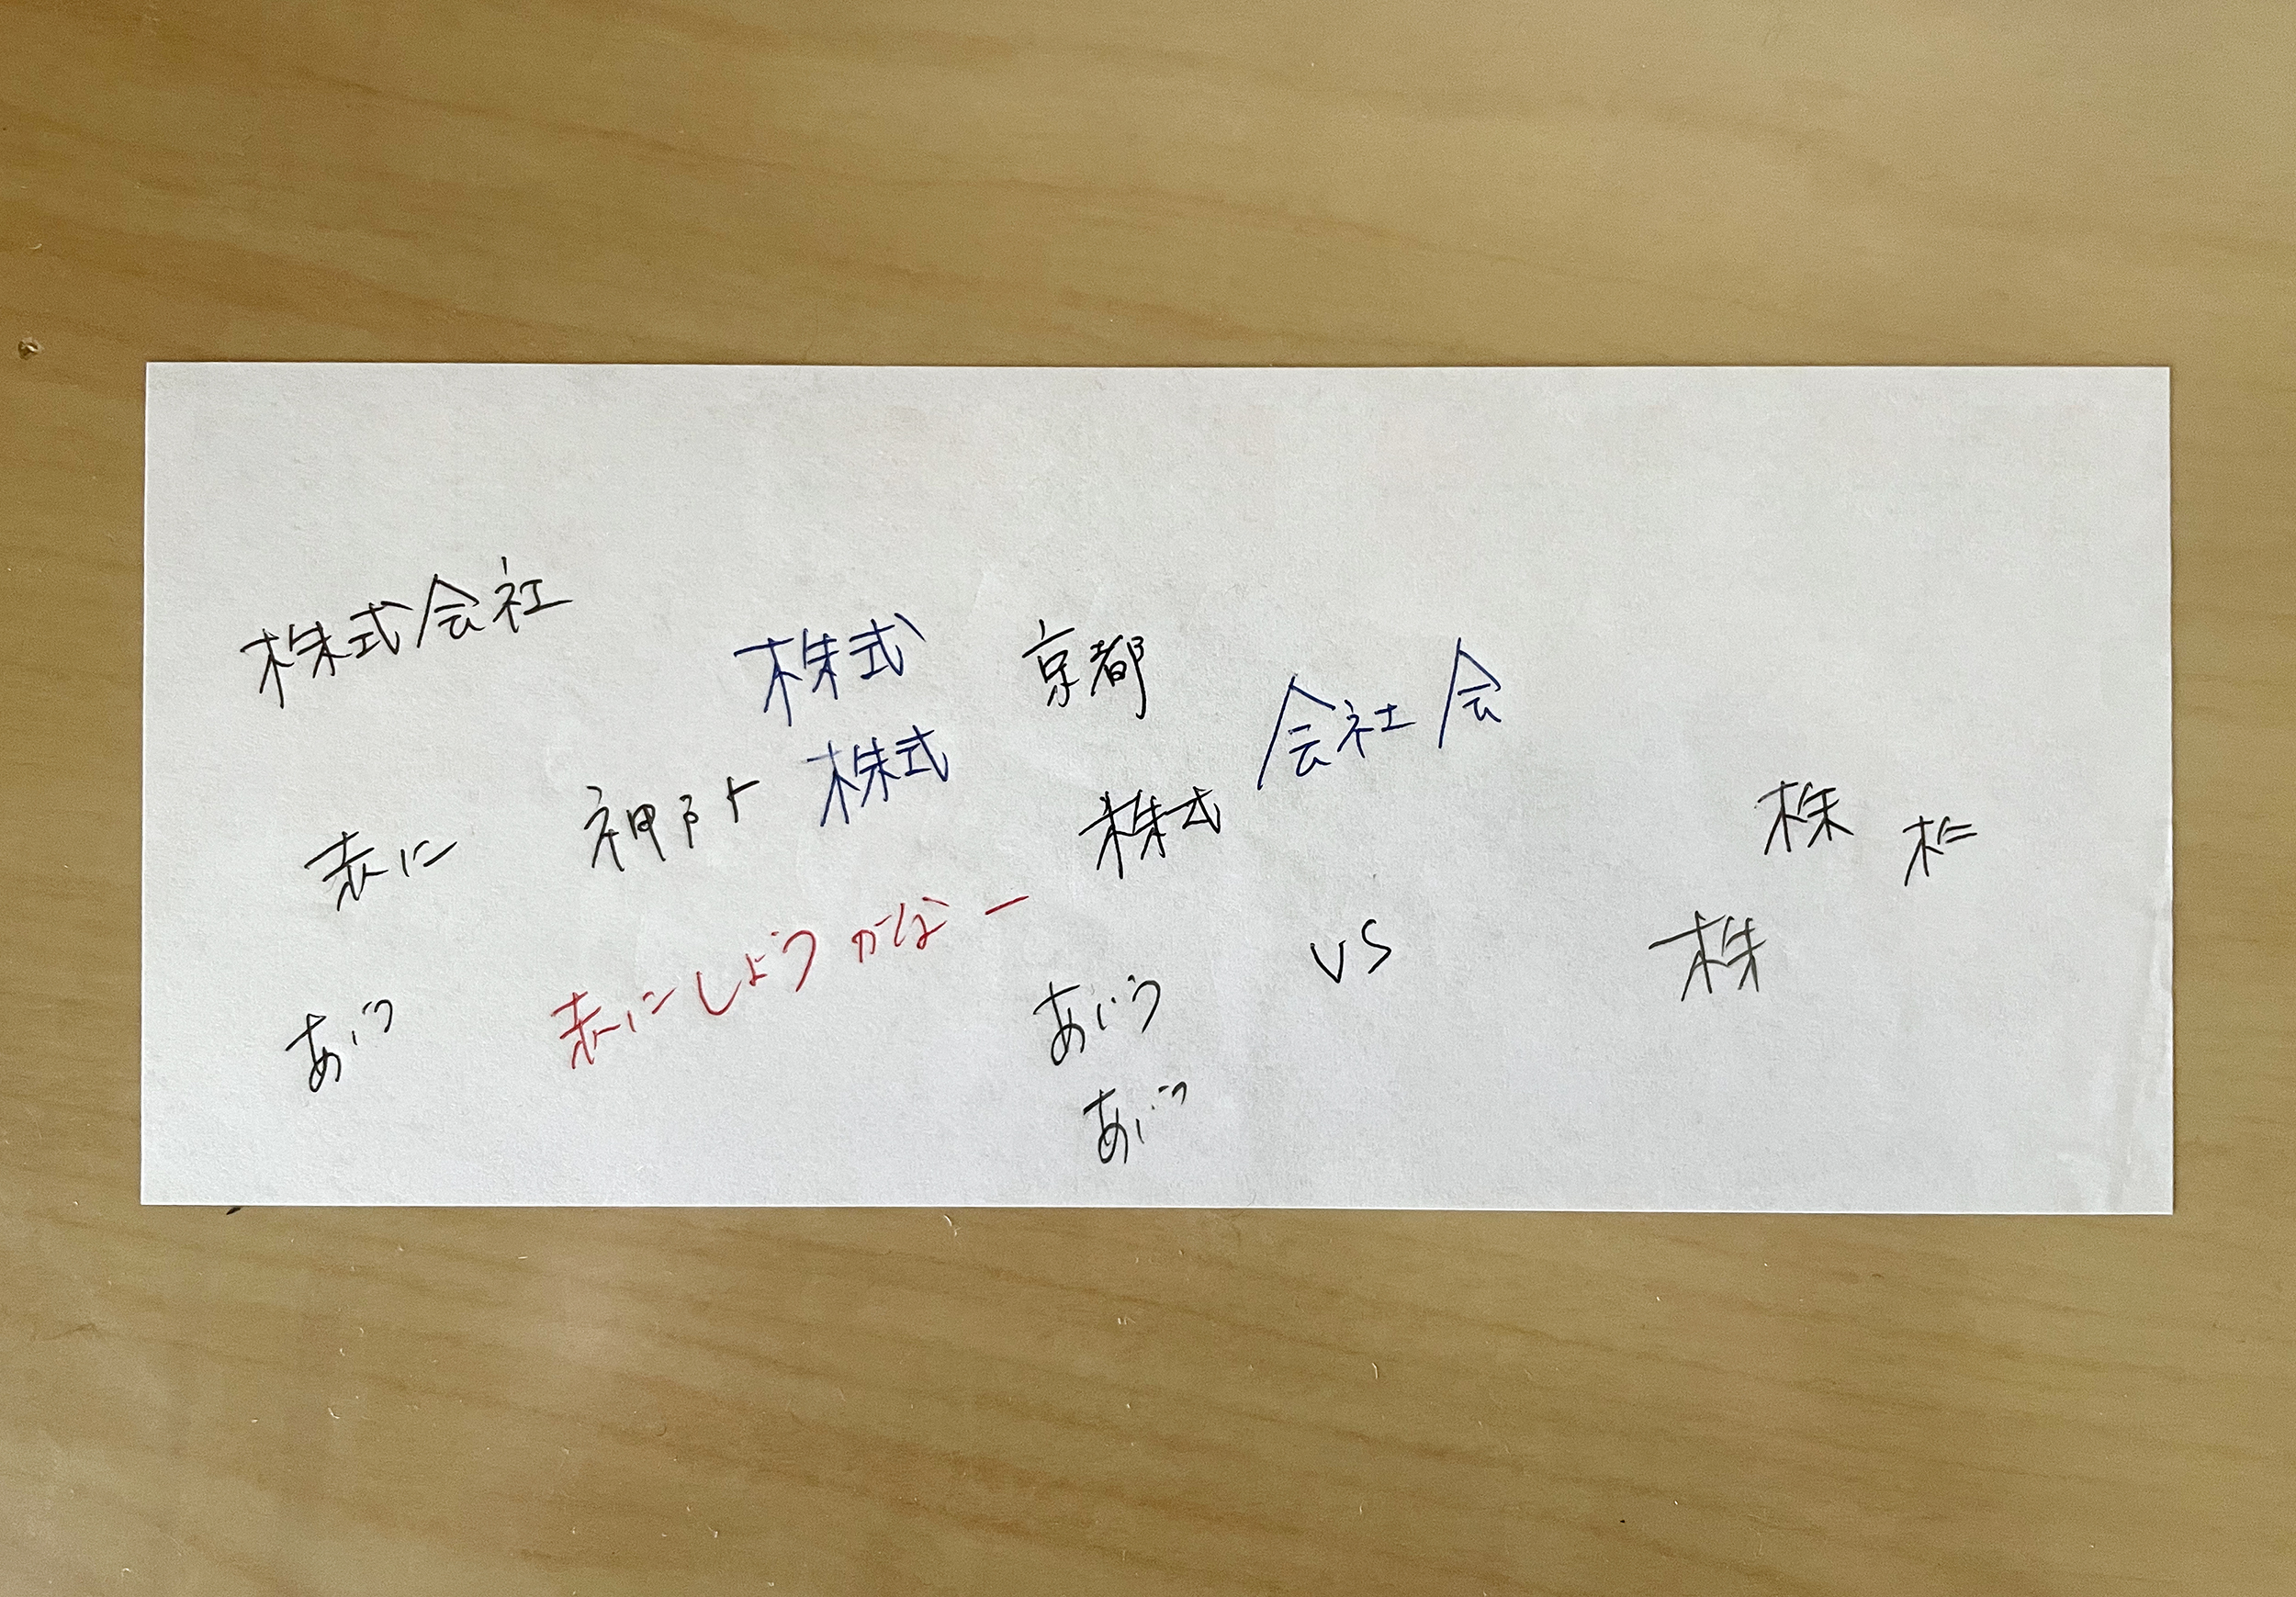 株式会社
株式 京都
会社 会
神戸ト 株式
株式
株
赤に
赤にしようかなー
vs
株
あいう
あいう
あいう